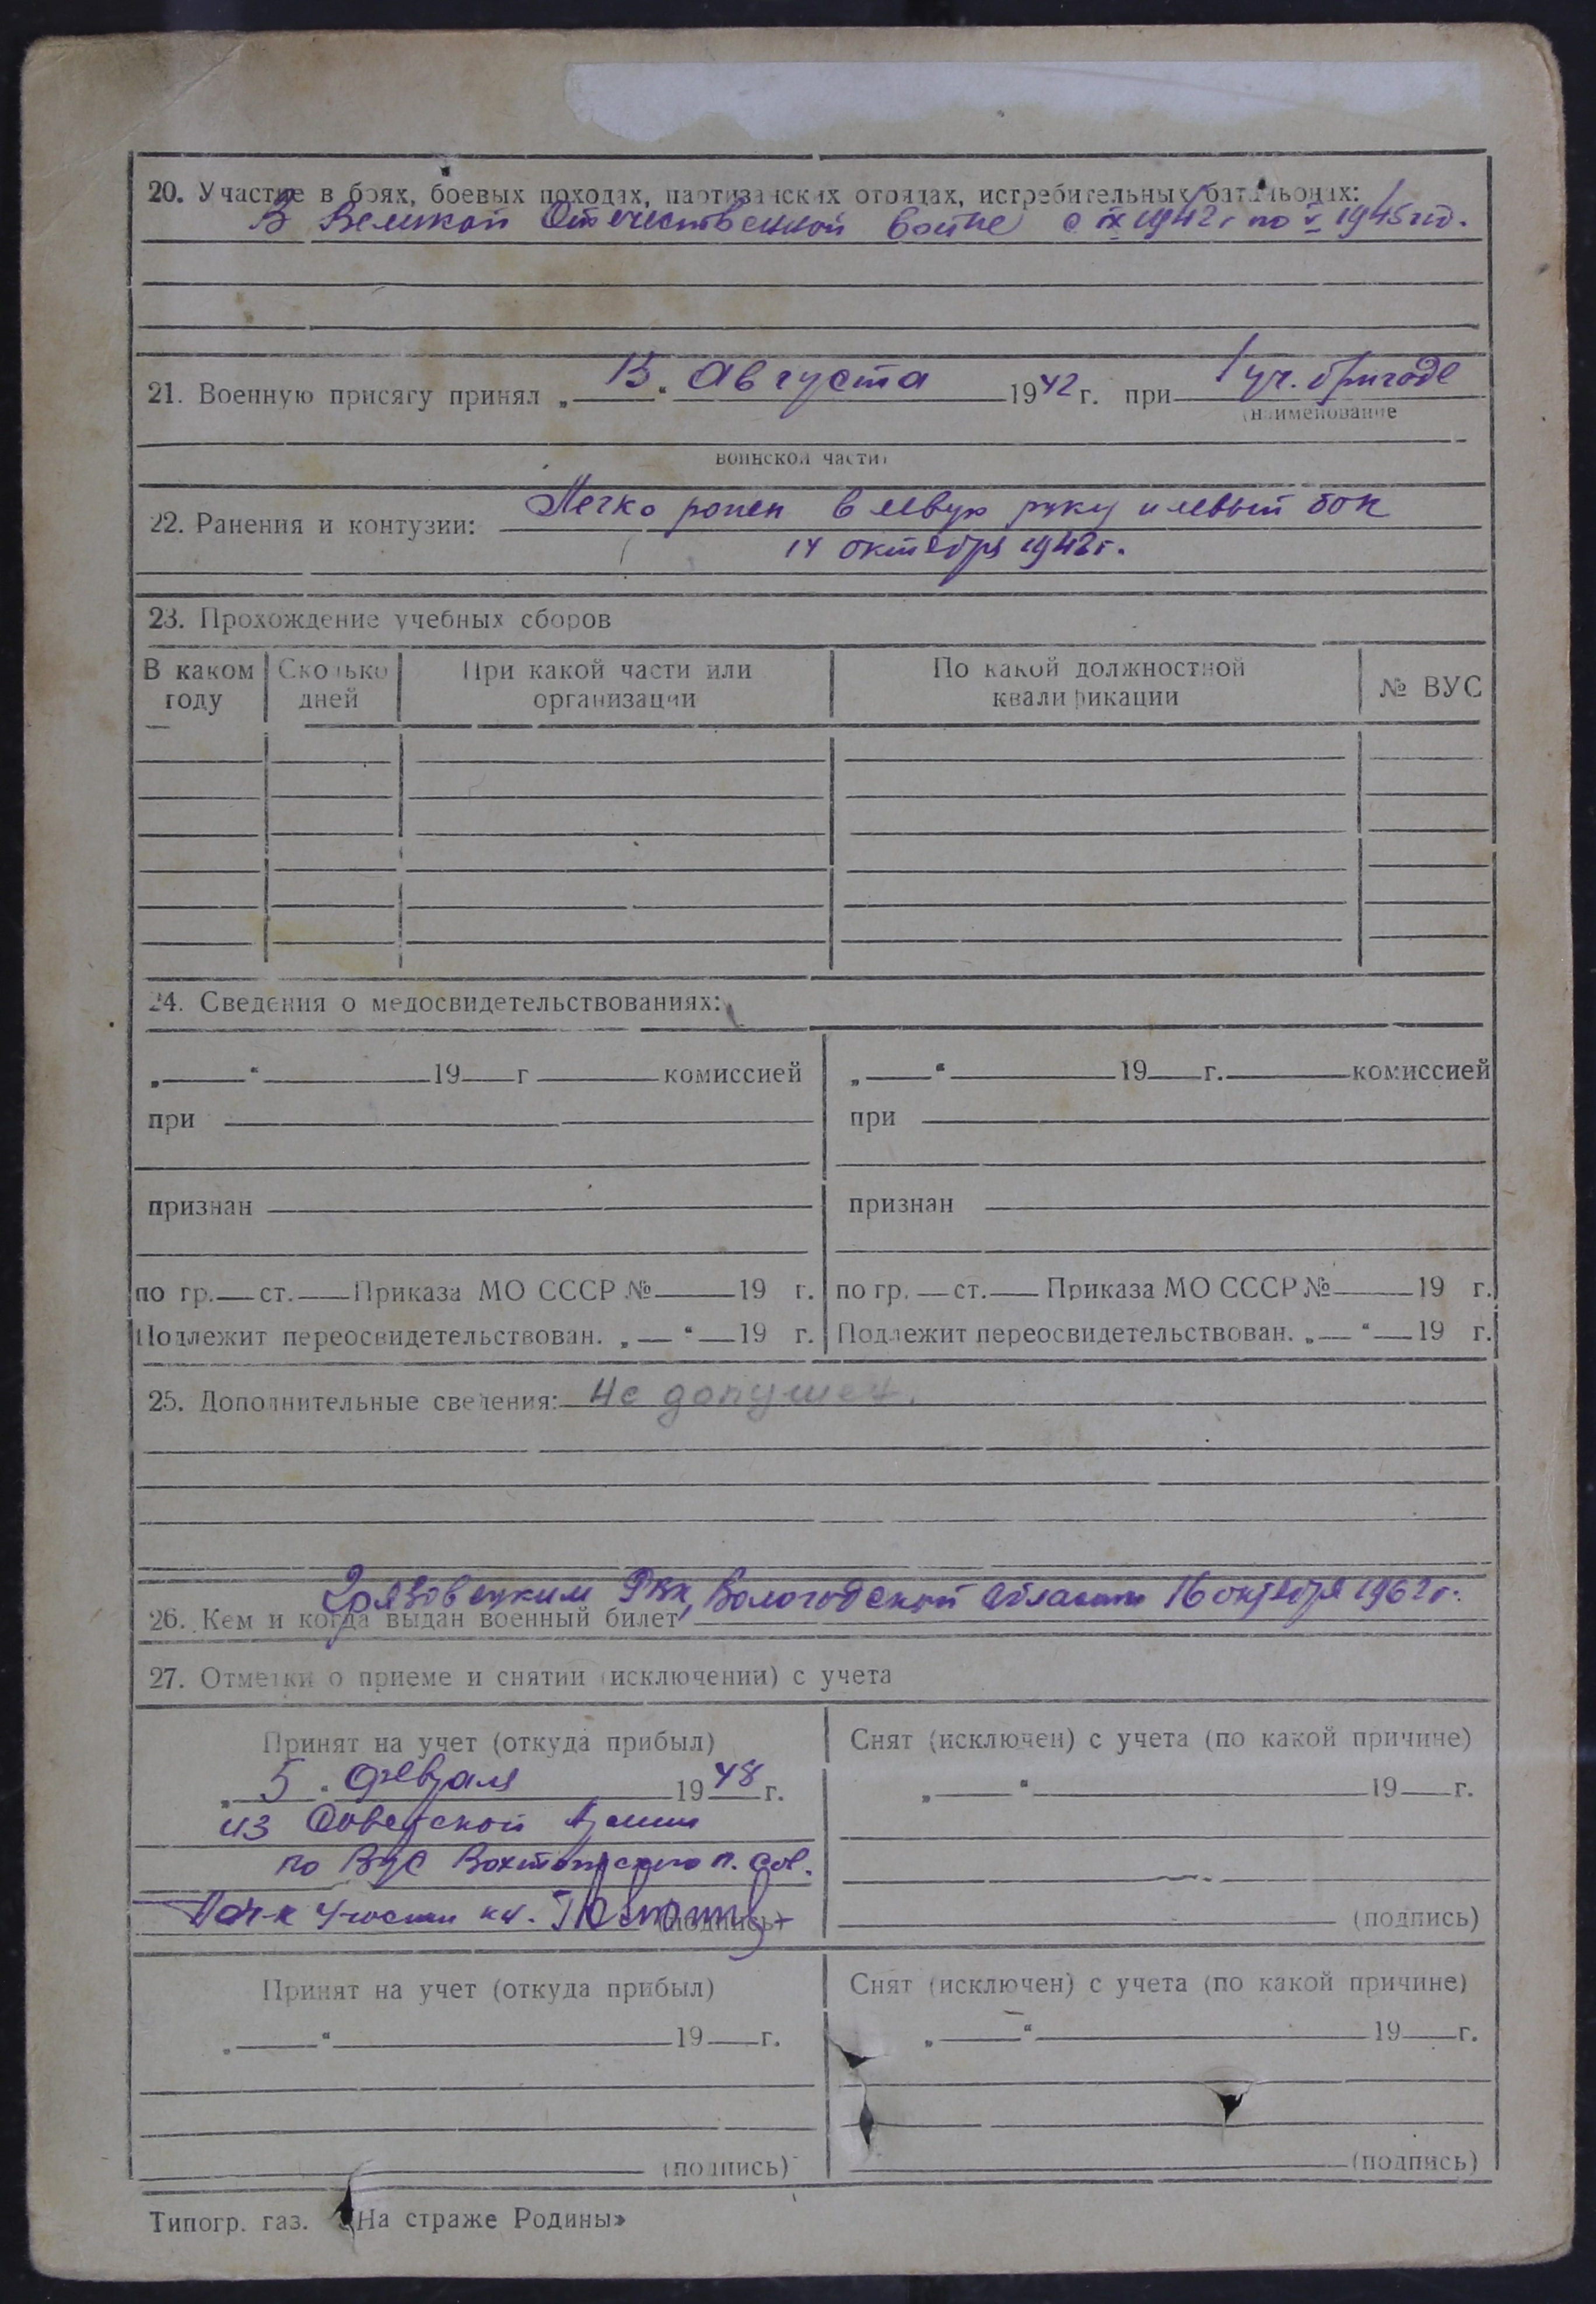 20. Участие в боях, боевых походах, партизанских отрядах, истребительных батальонах:
В Великой Отечественной войне с IX 1942 г по V 1945 год.
21. Военную присягу принял „13“ Августа 1942 г. при 1 уч. бригаде
(наименование
воинской части)
22. Ранения и контузии: Легко ранен в левую руку и левый бок
14 октября 1942 г.
23. Прохождение учебных сборов
В каком году | Сколько дней | При какой части или организации | По какой должностной квалификации | № ВУС
24. Сведения о медосвидетельствованиях:
„ “ 19 г комиссией „ “ 19 г. комиссией
при при
признан признан
по гр. ст. Приказа МО СССР № 19 г. по гр. ст. Приказа МО СССР № 19 г.
Подлежит переосвидетельствован. „ “ 19 г. Подлежит переосвидетельствован. „ “ 19 г.
25. Дополнительные сведения: Не допущен.
26. Кем и когда выдан военный билет Грязовецким РВК, Вологодской области 16 октября 1962 г.
27. Отметки о приеме и снятии (исключении) с учета
Принят на учет (откуда прибыл) Снят (исключен) с учета (по какой причине)
„5“ февраля 1948 г. „ “ 19 г.
из Советской Армии
по ВУС Вохтожского п. Сов.
Нач-к 4 части к-н. (подпись) (подпись)
Принят на учет (откуда прибыл) Снят (исключен) с учета (по какой причине)
„ “ 19 г. „ “ 19 г.
(подпись) (подпись)
Типогр. газ. «На страже Родины»